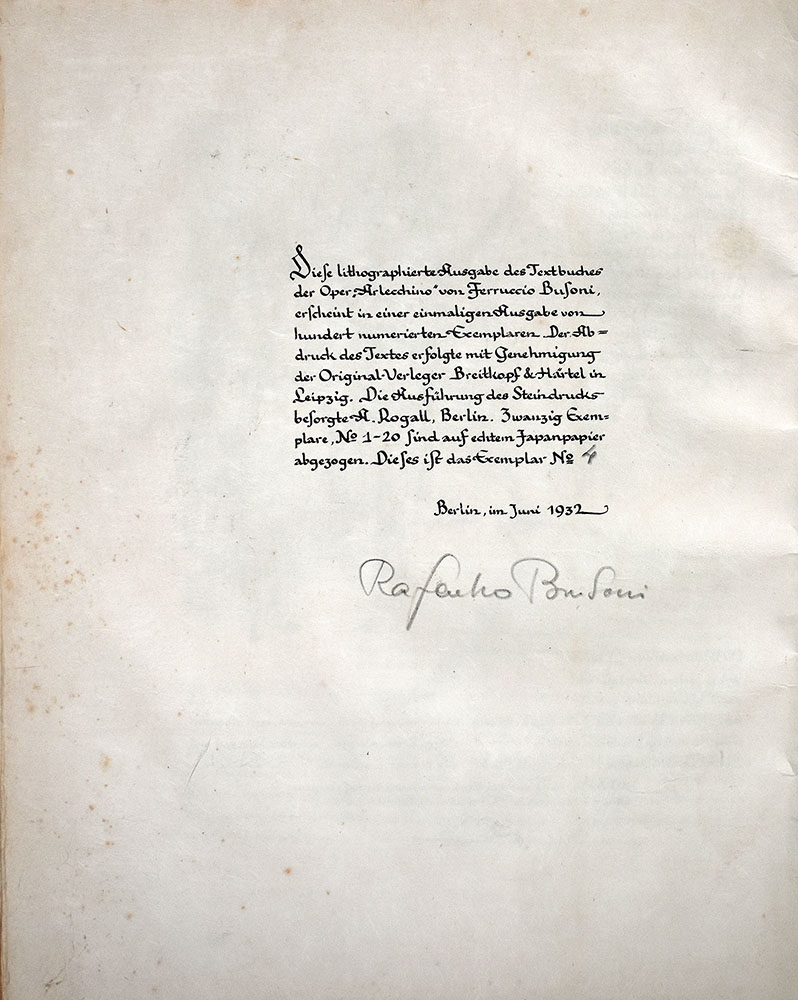 Dieſe lithographierte Ausgabe des Textbuches
der Oper „Arlecchino" von Ferruccio Buſoni,
erſcheint in einer einmaligen Ausgabe von
hundert numerierten Exemplaren. Der Ab=
druck des Textes erfolgte mit Genehmigung
der Original-Verleger Breitkopf & Härtel in
Leipzig. Die Ausführung des Steindrucks
beſorgte A. Rogall, Berlin. Zwanzig Exem=
plare, No 1-20 ſind auf echtem Japanpapier
abgezogen. Dieſes iſt das Exemplar No 4
Berlin, im Juni 1932
Rafaello Busoni